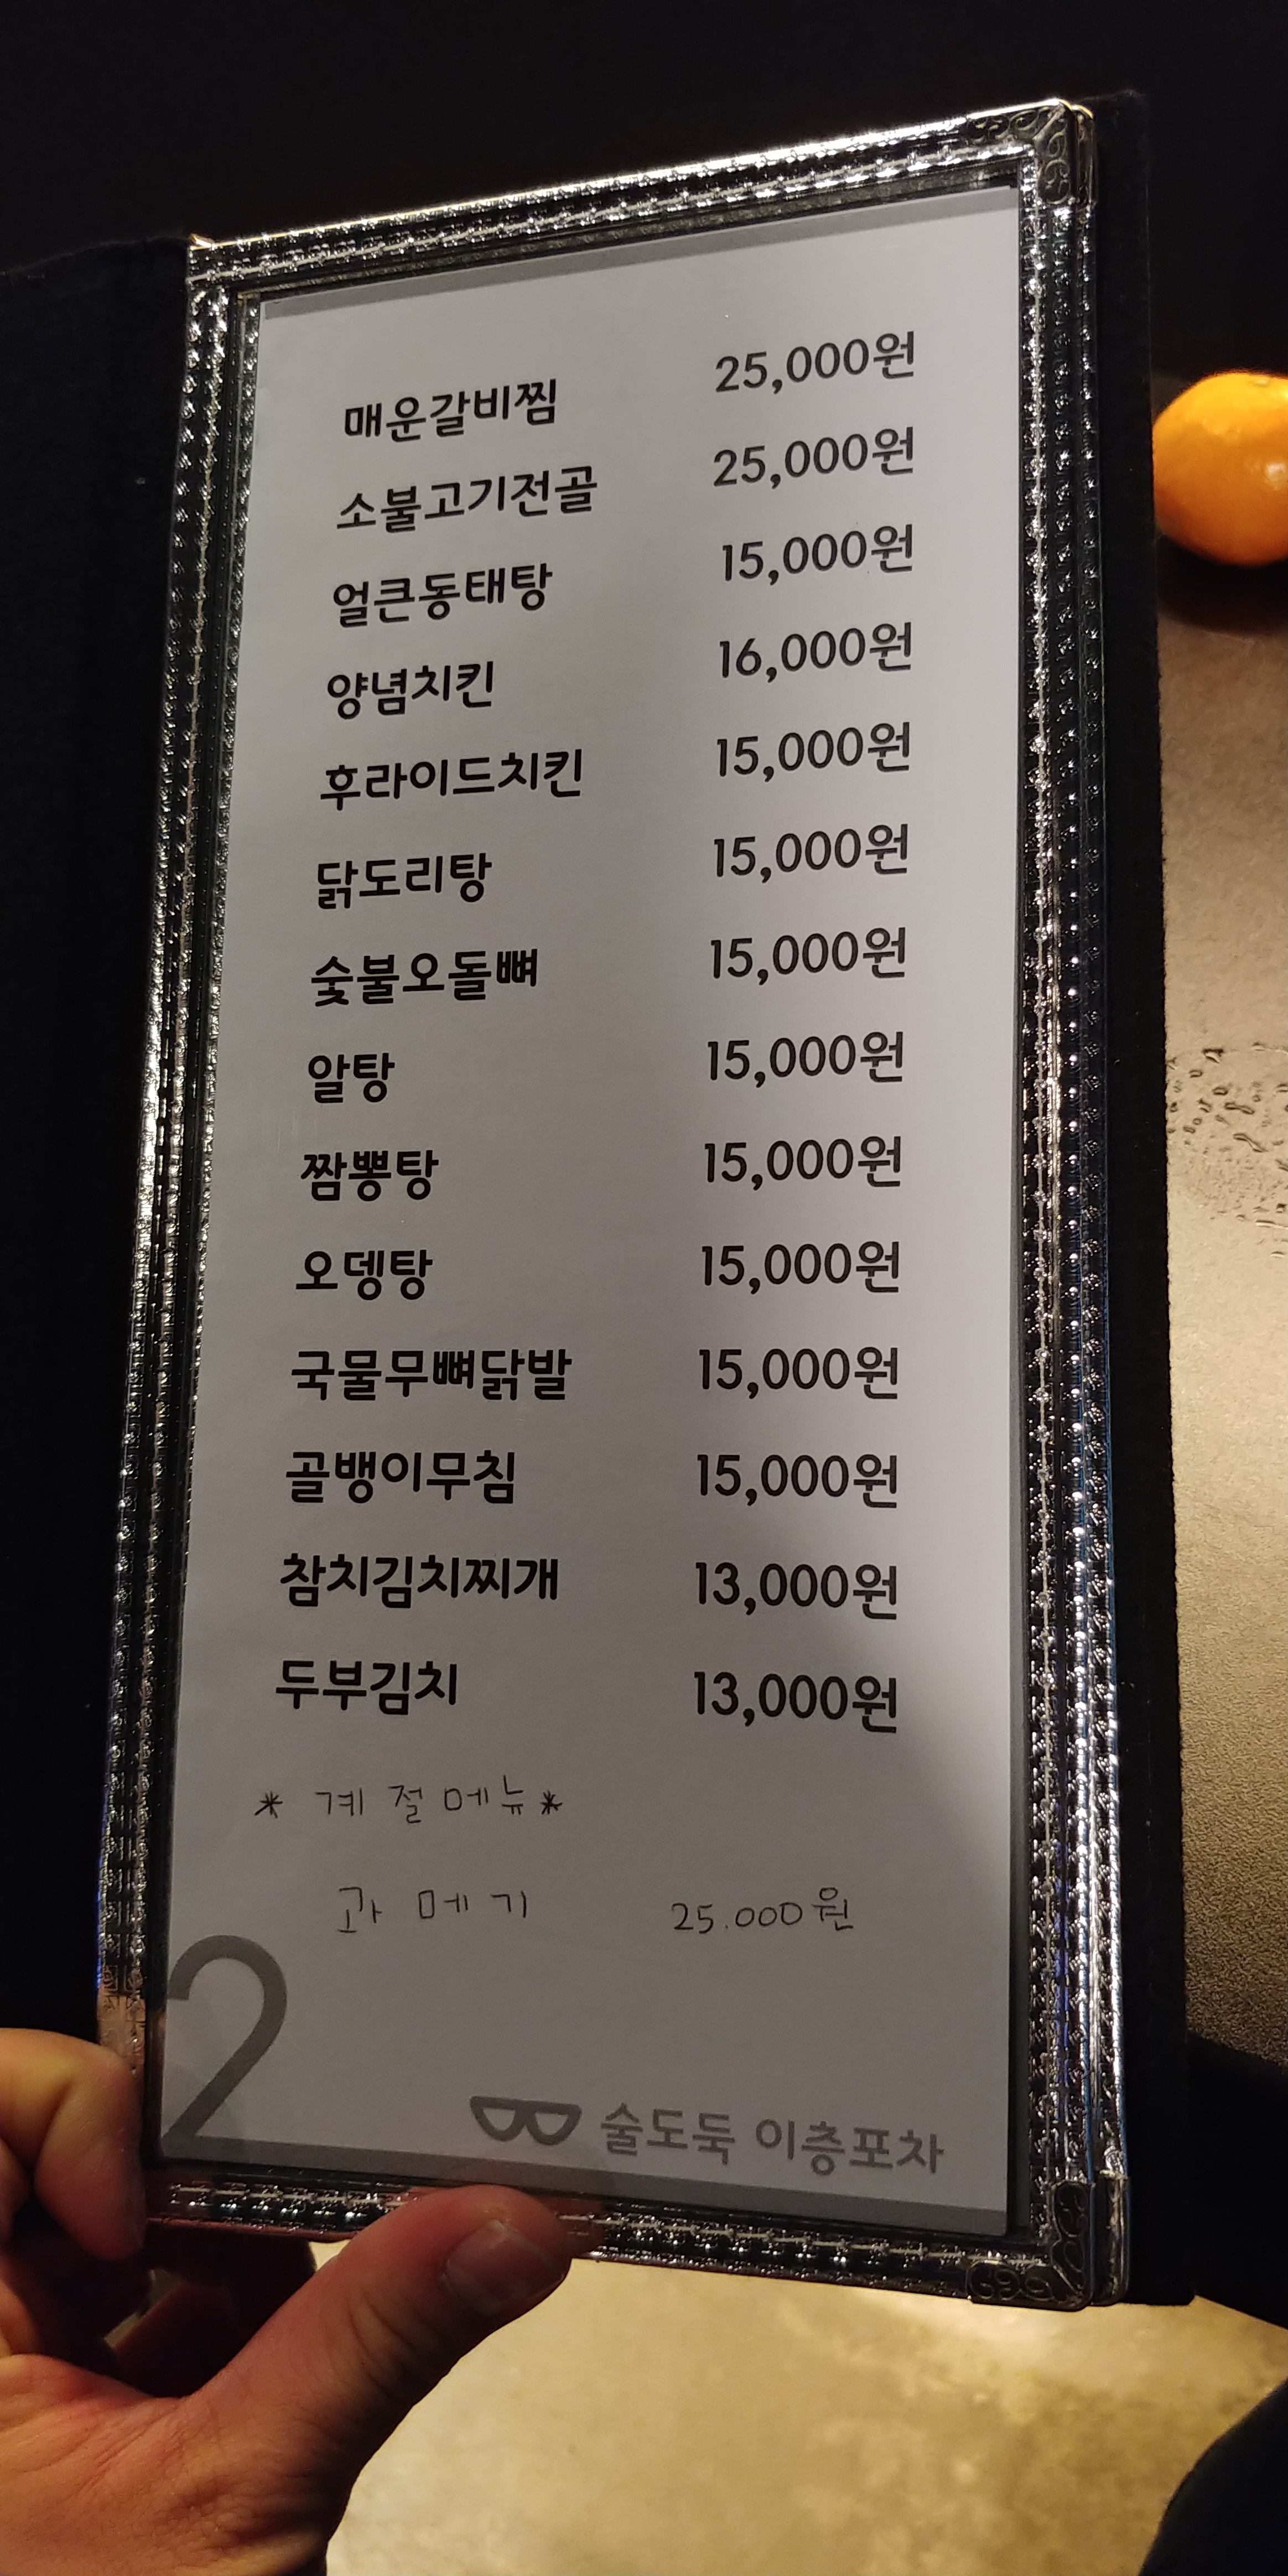 매운갈비찜 25,000원
소불고기전골 25,000원
얼큰동태탕 15,000원
양념치킨 16,000원
후라이드치킨 15,000원
닭도리탕 15,000원
숯불오돌뼈 15,000원
알탕 15,000원
짬뽕탕 15,000원
오뎅탕 15,000원
국물무뼈닭발 15,000원
골뱅이무침 15,000원
참치김치찌개 13,000원
두부김치 13,000원
* 계절메뉴*
과메기 25.000원
2
술도둑 이층포차